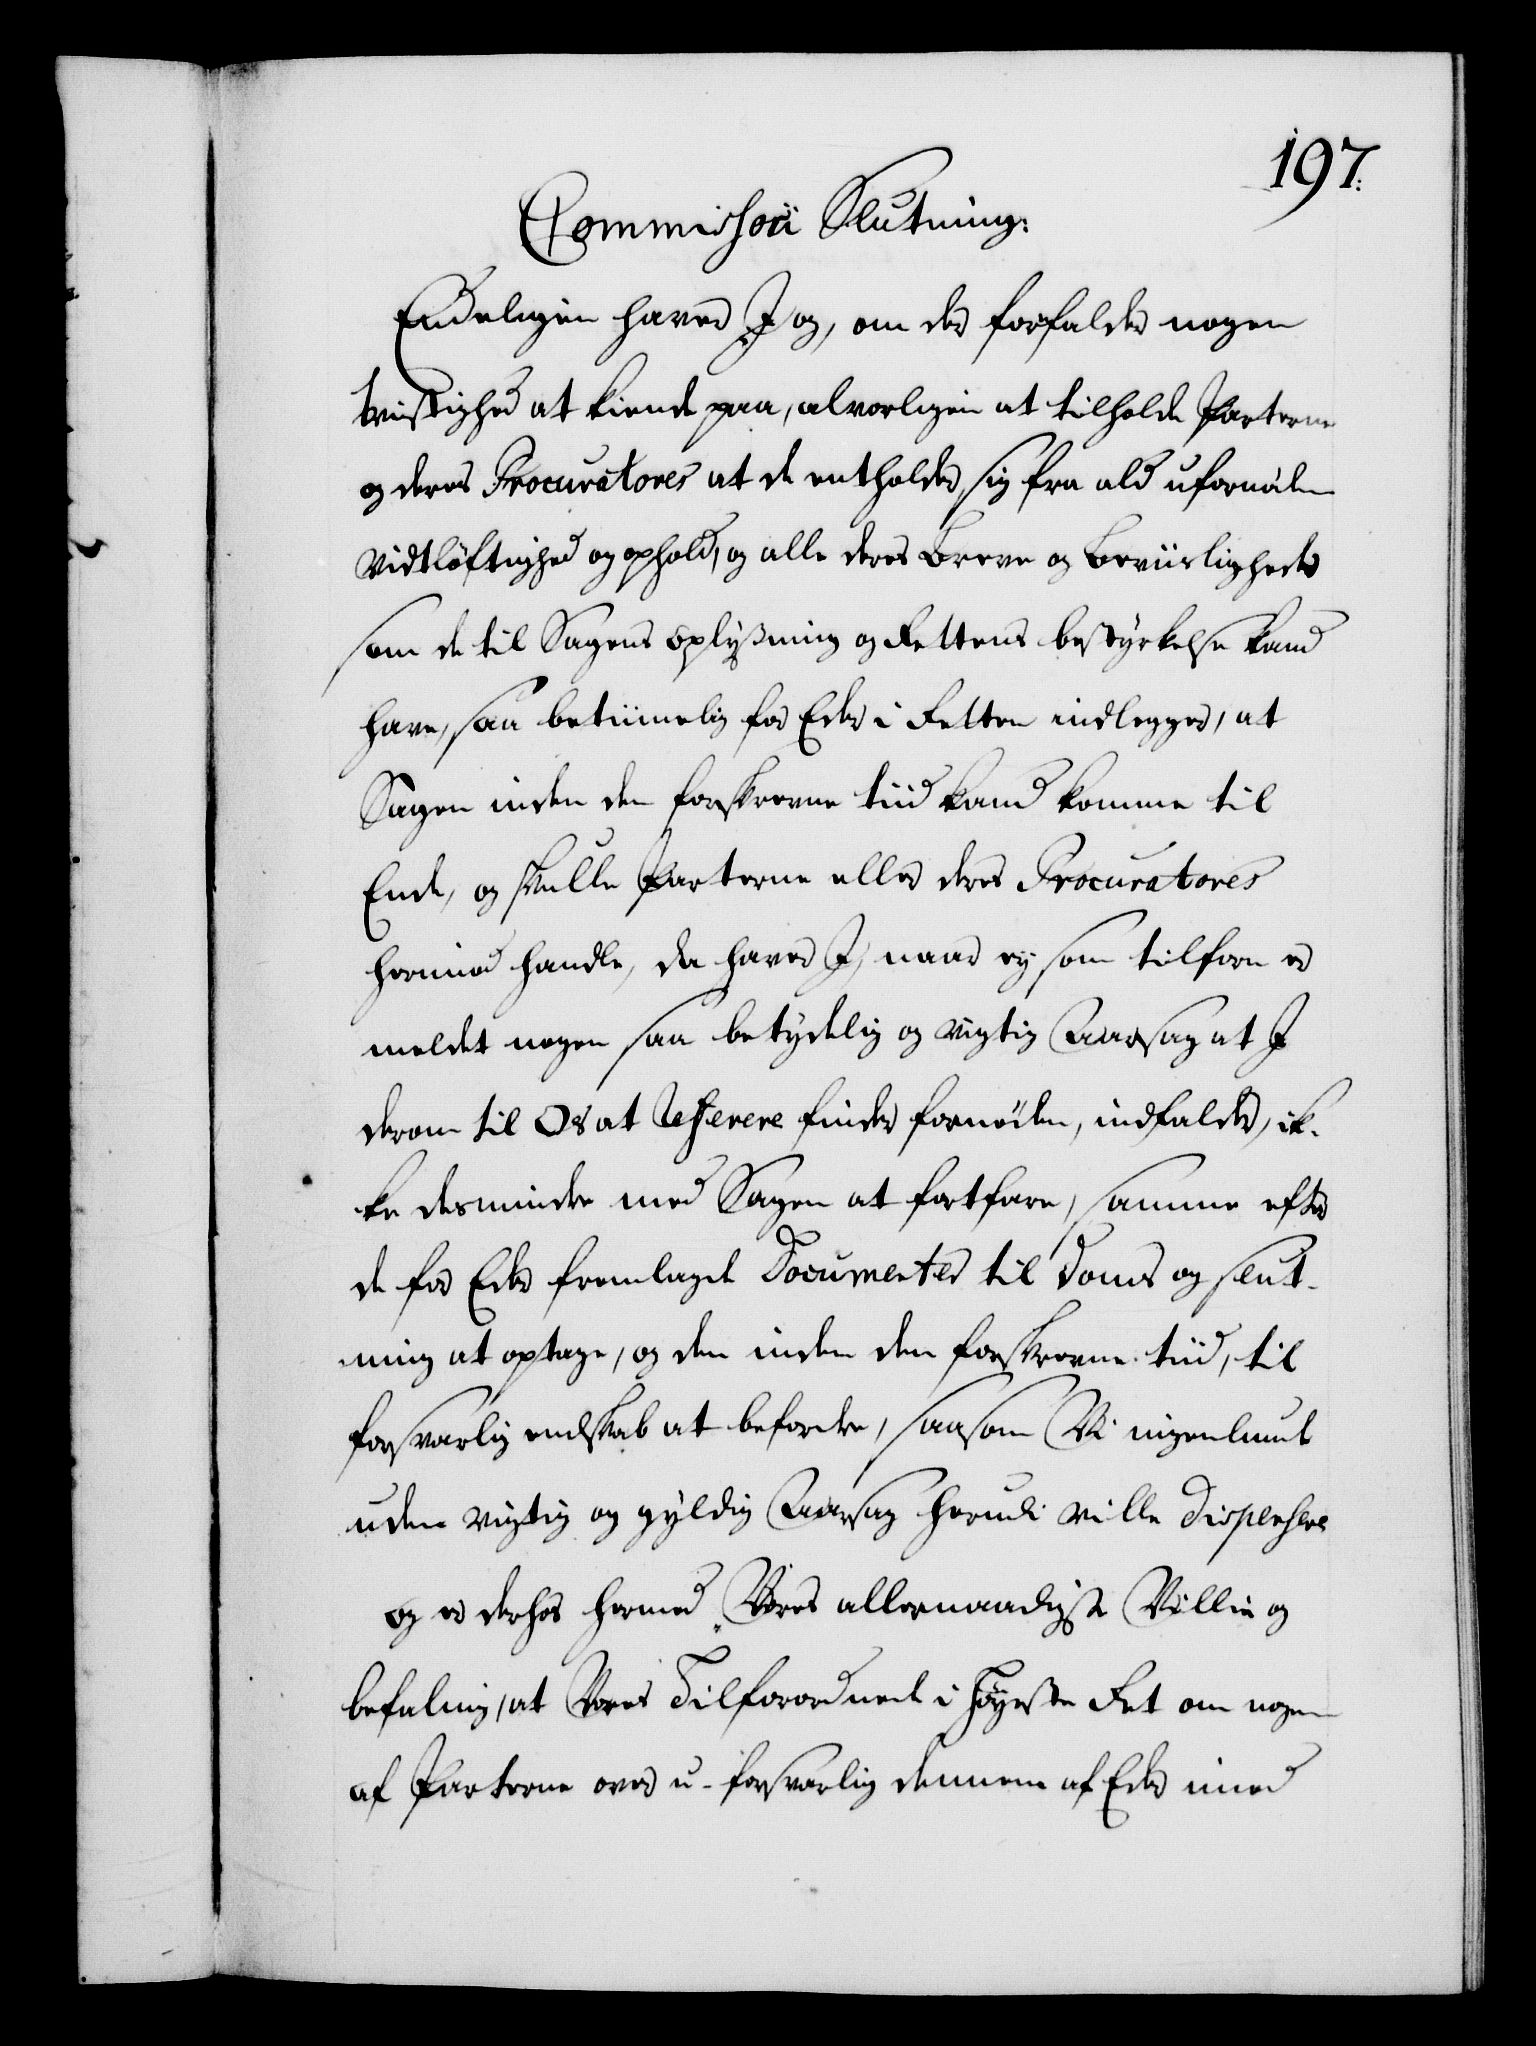 197.
Commissorii Slutning:
Endeligen haver I og, om der forfalder nogen
tvistighed at kiende paa, alvorligen at tilholde Parterne
og deres Procuratores at de entholder sig fra ald ufornöden
Vidtlöftighed og ophold, og alle deres breve og beviisligheder
som de til Sagens oplysning og Rettens bestyrkelse kand
have, saa betiimelig for Eder i Retten indlegger, at
Sagen inden den forskrevne tiid kand komme til
Ende, og skulle Parterne eller deres Procuratores
herimod handle, da haver I, naar ey som tilforn er
meldet nogen saa betydelig og vigtig Aarsag at I
derom til Os at referere finder fornöden, indfalder, ik-
ke desmindre med Sagen at fortfare, samme efter
de for Eder fremlagde Documenter til Doms og slut-
ning at optage, og den inden den forskrevne tiid, til
forsvarlig endskab at befordre, saasom Vi ingenlunde
uden vigtig og gyldig Aarsag herudi ville dispensere
og er derhos hermed Vores allernaadigste Villie og
befaling, at Vores Tilforordnede i Höyeste Ret om nogen
af Parterne over u-forsvarlig dennem af Eder imod